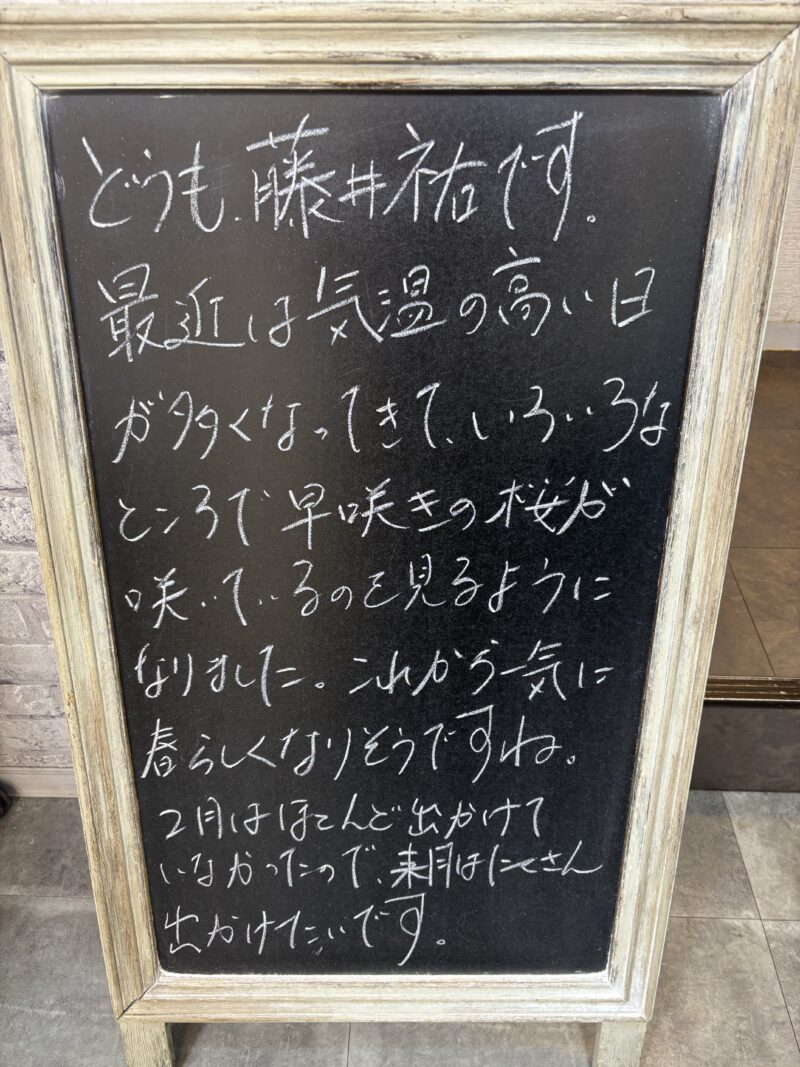 どうも、藤井祐です。
最近は気温の高い日
が多くなってきて、いろいろな
ところで早咲きの桜が
咲いているのを見るように
なりました。これから一気に
春らしくなりそうですね。
2月はほとんど出かけて
いなかったので、来月はたくさん
出かけたいです。